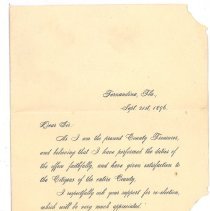 Fernandina, Fla,
Sept. 21st, 1896.
Dear Sir:
As I am the present County Treasurer,
and believing that I have performed the duties of
the office faithfully, and have given satisfaction to
the Citizens of the entire County,
I respectfully ask your support for re-election,
which will be very much appreciated.